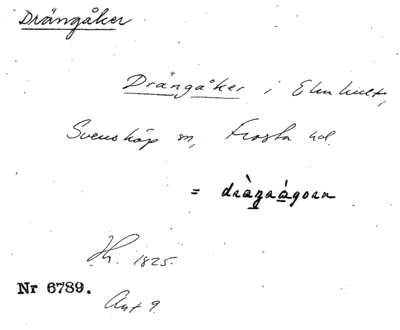 Drängåker
Drängåker i Elmhult,
Svensköp sn, Frosta hd.
= dràŋaágorn
Hs. 1825.
Nr 6789.
Ant 9.